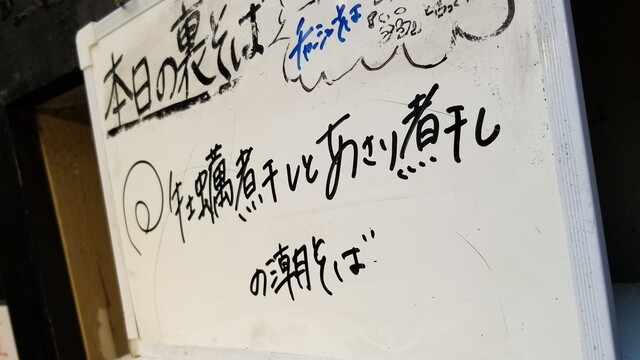 本日の裏そば
チャーシューそば
牡蠣煮干しとあさり煮干し
の潮そば